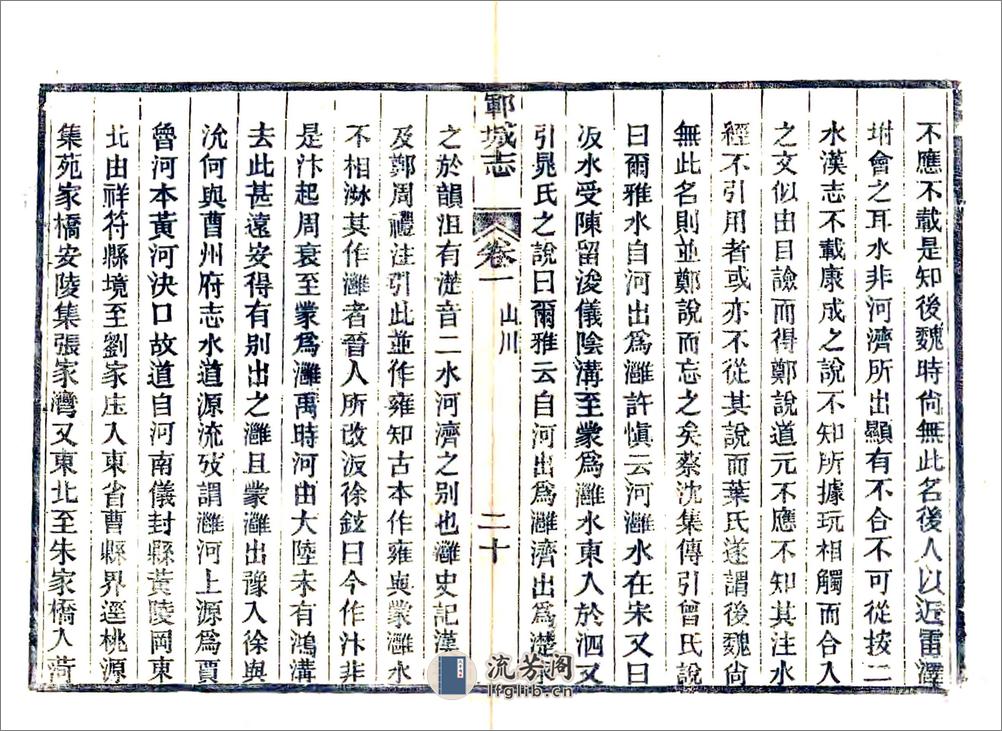 不應不載是知後魏時尙無此名後人以近雷澤
坿會之耳水非河濟所出顯有不合不可從按二
水漢志不載康成之說不知所據玩相觸而合入
之文似出目譣而得鄭說道元不應不知其注水
經不引用者或亦不從其說而葉氏遂謂後魏尙
無此名則並鄭說而忘之矣蔡沈集傳引曾氏說
曰爾雅水自河出爲灉許愼云河灉水在宋又曰
汳水受陳留浚儀陰溝至蒙爲灉水東入於泗又
引晁氏之說曰爾雅云自河出爲灉濟出爲濋
鄆城志 卷一 山川 二十
之於韻沮有濋音二水河濟之别也灉史記漢
及鄭周禮注引此並作雍知古本作雍與蒙灉水
不相涉其作灉者晉人所改汳徐鉉曰今作汴非
是汴起周衰至蒙爲灉禹時河由大陸未有鴻溝
去此甚遠安得有别出之灉且蒙灉出豫入徐與
沇何與曹州府志水道源流攷謂灉河上源爲賈
魯河本黃河決口故道自河南儀封縣黃陵岡東
北由祥符縣境至劉家庄入東省曹縣界逕桃源
集苑家橋安陵集張家灣又東北至朱家橋入菏
流芳阁
lfglib.cn